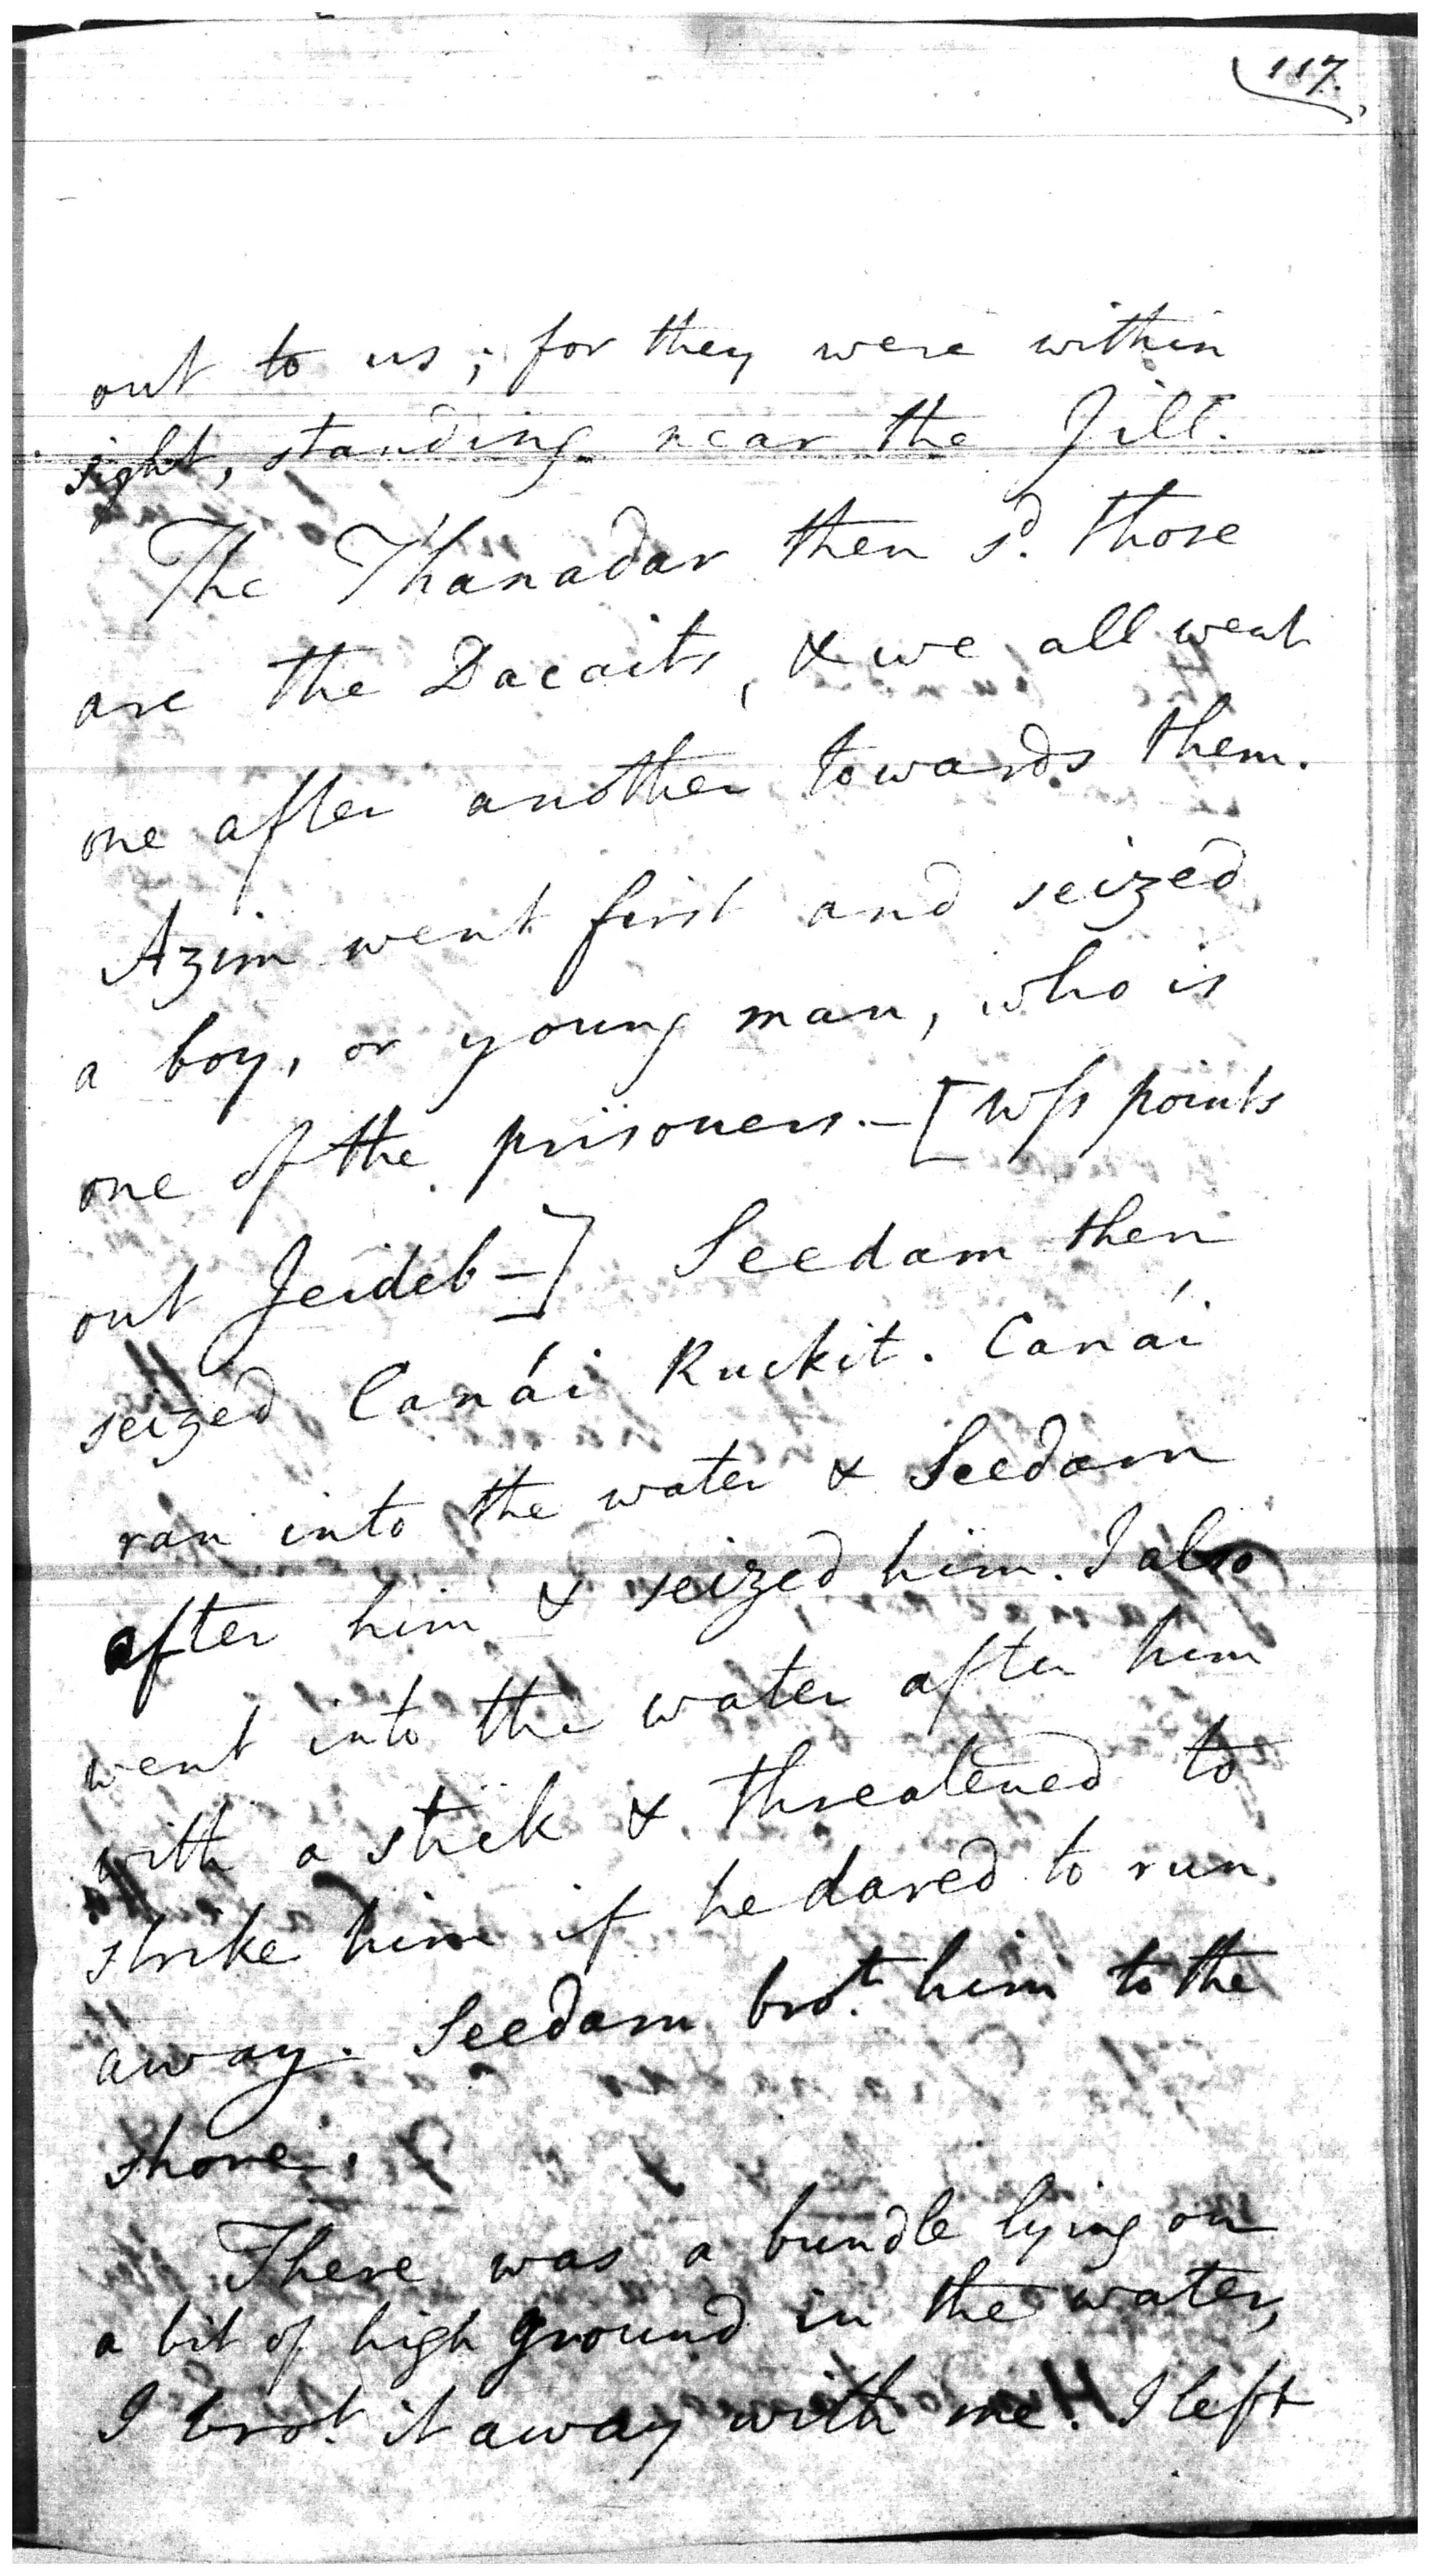 117.
out to us; for they were within
sight, standing near the Jill.
The Thanadar then sd. those
are the Dacoits, & we all went
one after another towards them.
Azim went first and seized
a boy, or young man, who is
one of the prisoners. — [Wss points
out Jeideb —] Seedam then
seized Canái Ruckit. Canái
ran into the water & Seedam
after him & seized him. I also
went into the water after him
with a stick & threatened to
strike him if he dared to run
away. Seedam brot. him to the
shore.
There was a bundle lying on
a bit of high ground in the water,
I brot. it away with me. I left